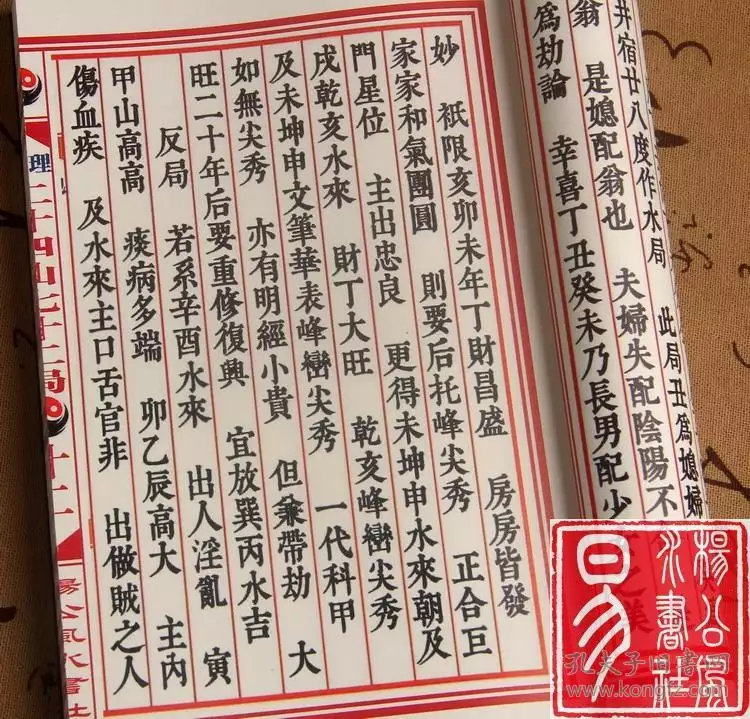 井宿廿八度作水局　此局丑為媳婦
翁　是媳配翁也　夫婦失配陰陽不
為劫論　幸喜丁丑癸未乃長男配少
妙　祇限亥卯未年丁財昌盛　房房皆發
家家和氣團圓　則要后托峰尖秀　正合巨
門星位　主出忠良　更得未坤申水來朝及
戌乾亥水來　財丁大旺　乾亥峰巒尖秀
及未坤申文筆華表峰巒尖秀　一代科甲
如無尖秀　亦有明經小貴　但兼帶劫　大
旺二十年后要重修復興　宜放巽丙水吉
反局　若系辛酉水來　出人淫亂　寅
甲山高高　痰病多端　卯乙辰高大　主內
傷血疾　及水來主口舌官非　出做賊之人
理　二十四山七十二局　十二
楊公風水書社
楊公風水書社
易
孔夫子旧书网
www.kongfz.com